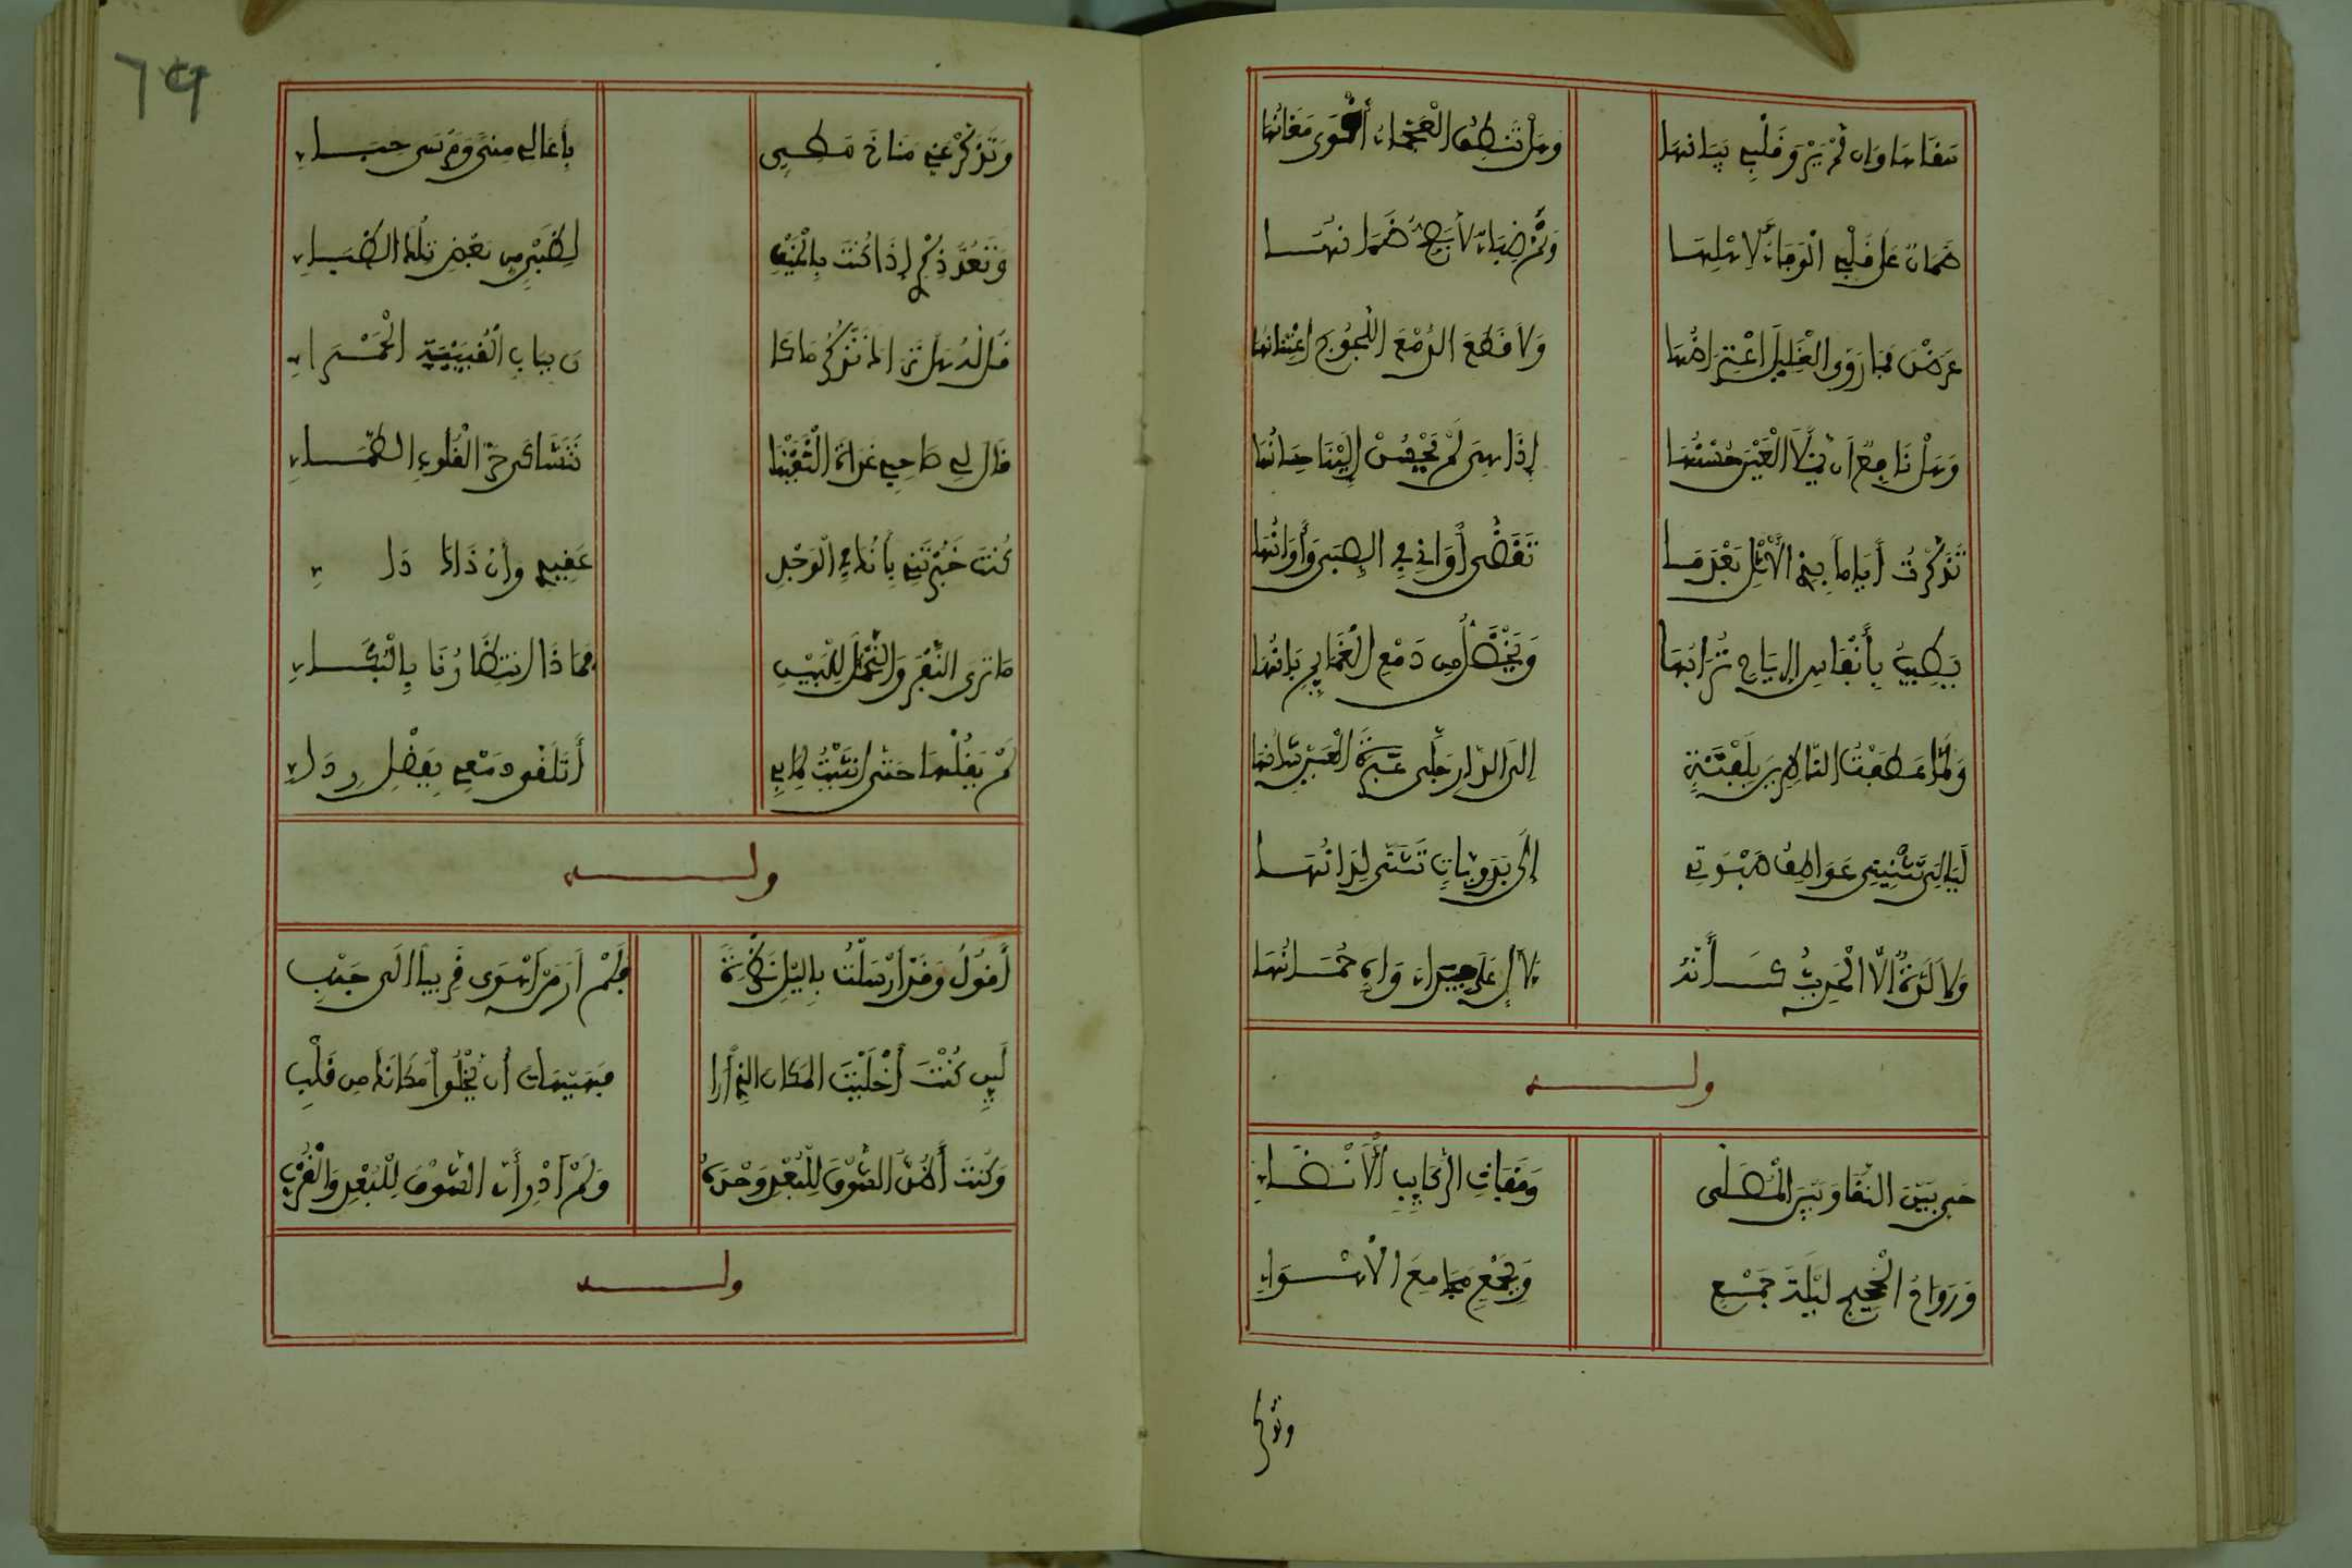 سقاها وإن لم يرو قلبي بيانها وهل تنطق العجماء أقوى مغانها
ضمان على قلبي الوفاء لأهلها وثم ضباء لا يصح ضمانها
عرضن فما روى الغليل اعتراضها ولا قطع الدمع اللجوج اعتنانها
وهل نافع أن يملأ العين حسنها إذا هي لم يحسن إلينا حسانها
تذكرت أياما بذي الأثل بعد ما تقضى أواني في الصبى وأوانها
يطيب بأنفاس الرياح ترابها ويخضل من دمع الغمايم بانها
ولما عطفت الناظرين بلفتة الى الدار خلى عبرة العين شانها
ليالي تثنيني عواطف صبوتي إلى بدويات تثنى لدانها
ولا لذة الا الحديث كأنه لآل على جيداء واه جمانها
وله
حي بين النقا وبين المصلى وقفات الركايب الأنضاء
ورواح الحجيج ليلة جمع وبجمع مجامع الاهواء
وتذكر
٦٩
وتذكر عني مناخ مطيي بأعالي منى ومرسى خباء
وتعمد ذكري إذا كنت بالخيف لظبي من بعض تلك الظباء
قل له هل تراك تذكر ما كا ن بباب القبيبة الحمراء
قال لي صاحبي غداة التقينا نتشاكى حر القلوب الظماء
كنت خبرتني بأنك في الوجد عقيدي وأن ذاك داء
ما ترى النفر والتحمل للبين فماذا انتظارنا بالبكاء
لم يقلها حتى انثنيت لما بي أتلقى دمعي بفضل رداء
وله
أقول وقد ارسلت بالليل نظرة فلم أر من أهوى قريبا الى جنبي
لين كنت أخليت المكان الذي أرا فهيهات أن يخلوا مكانك من قلب
وكنت أظن الشوق للبعد وحده ولم أدر أن الشوق للبعد والقرب
وله